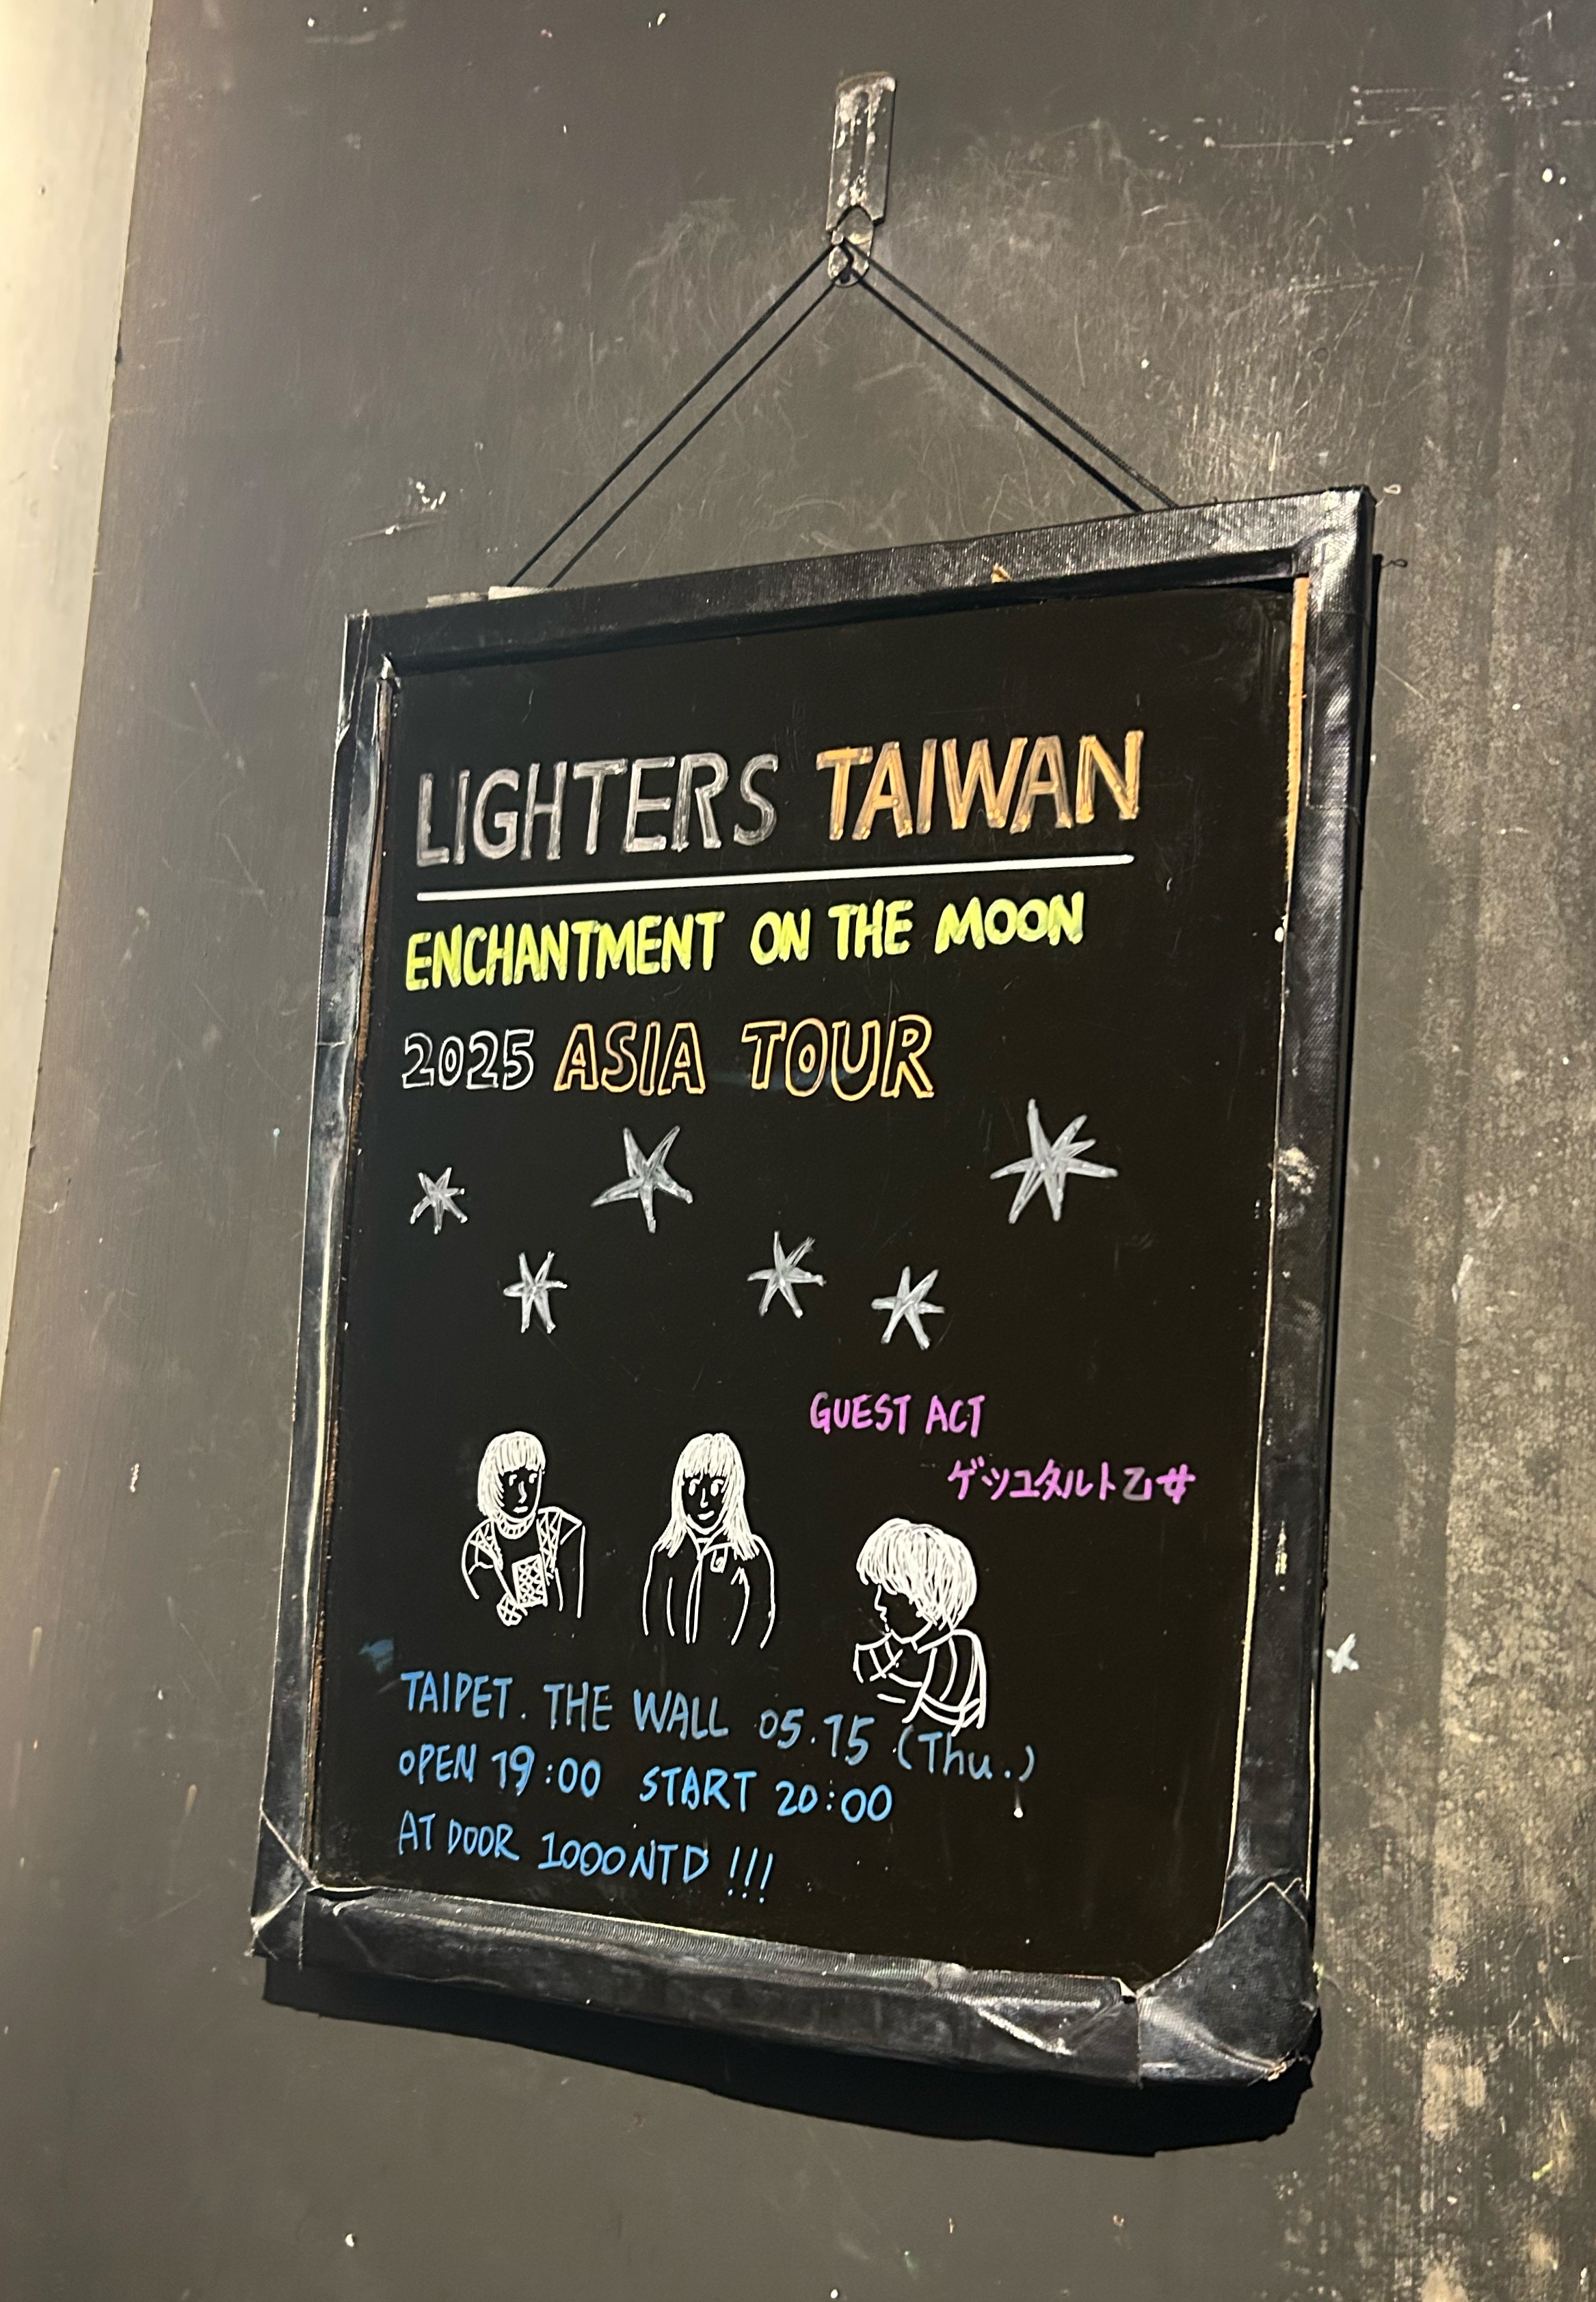 LIGHTERS TAIWAN
ENCHANTMENT ON THE MOON
2025 ASIA TOUR
GUEST ACT
ゲシュタルト乙女
TAIPET. THE WALL 05.15 (Thu.)
OPEN 19:00 START 20:00
AT DOOR 1000NTD !!!